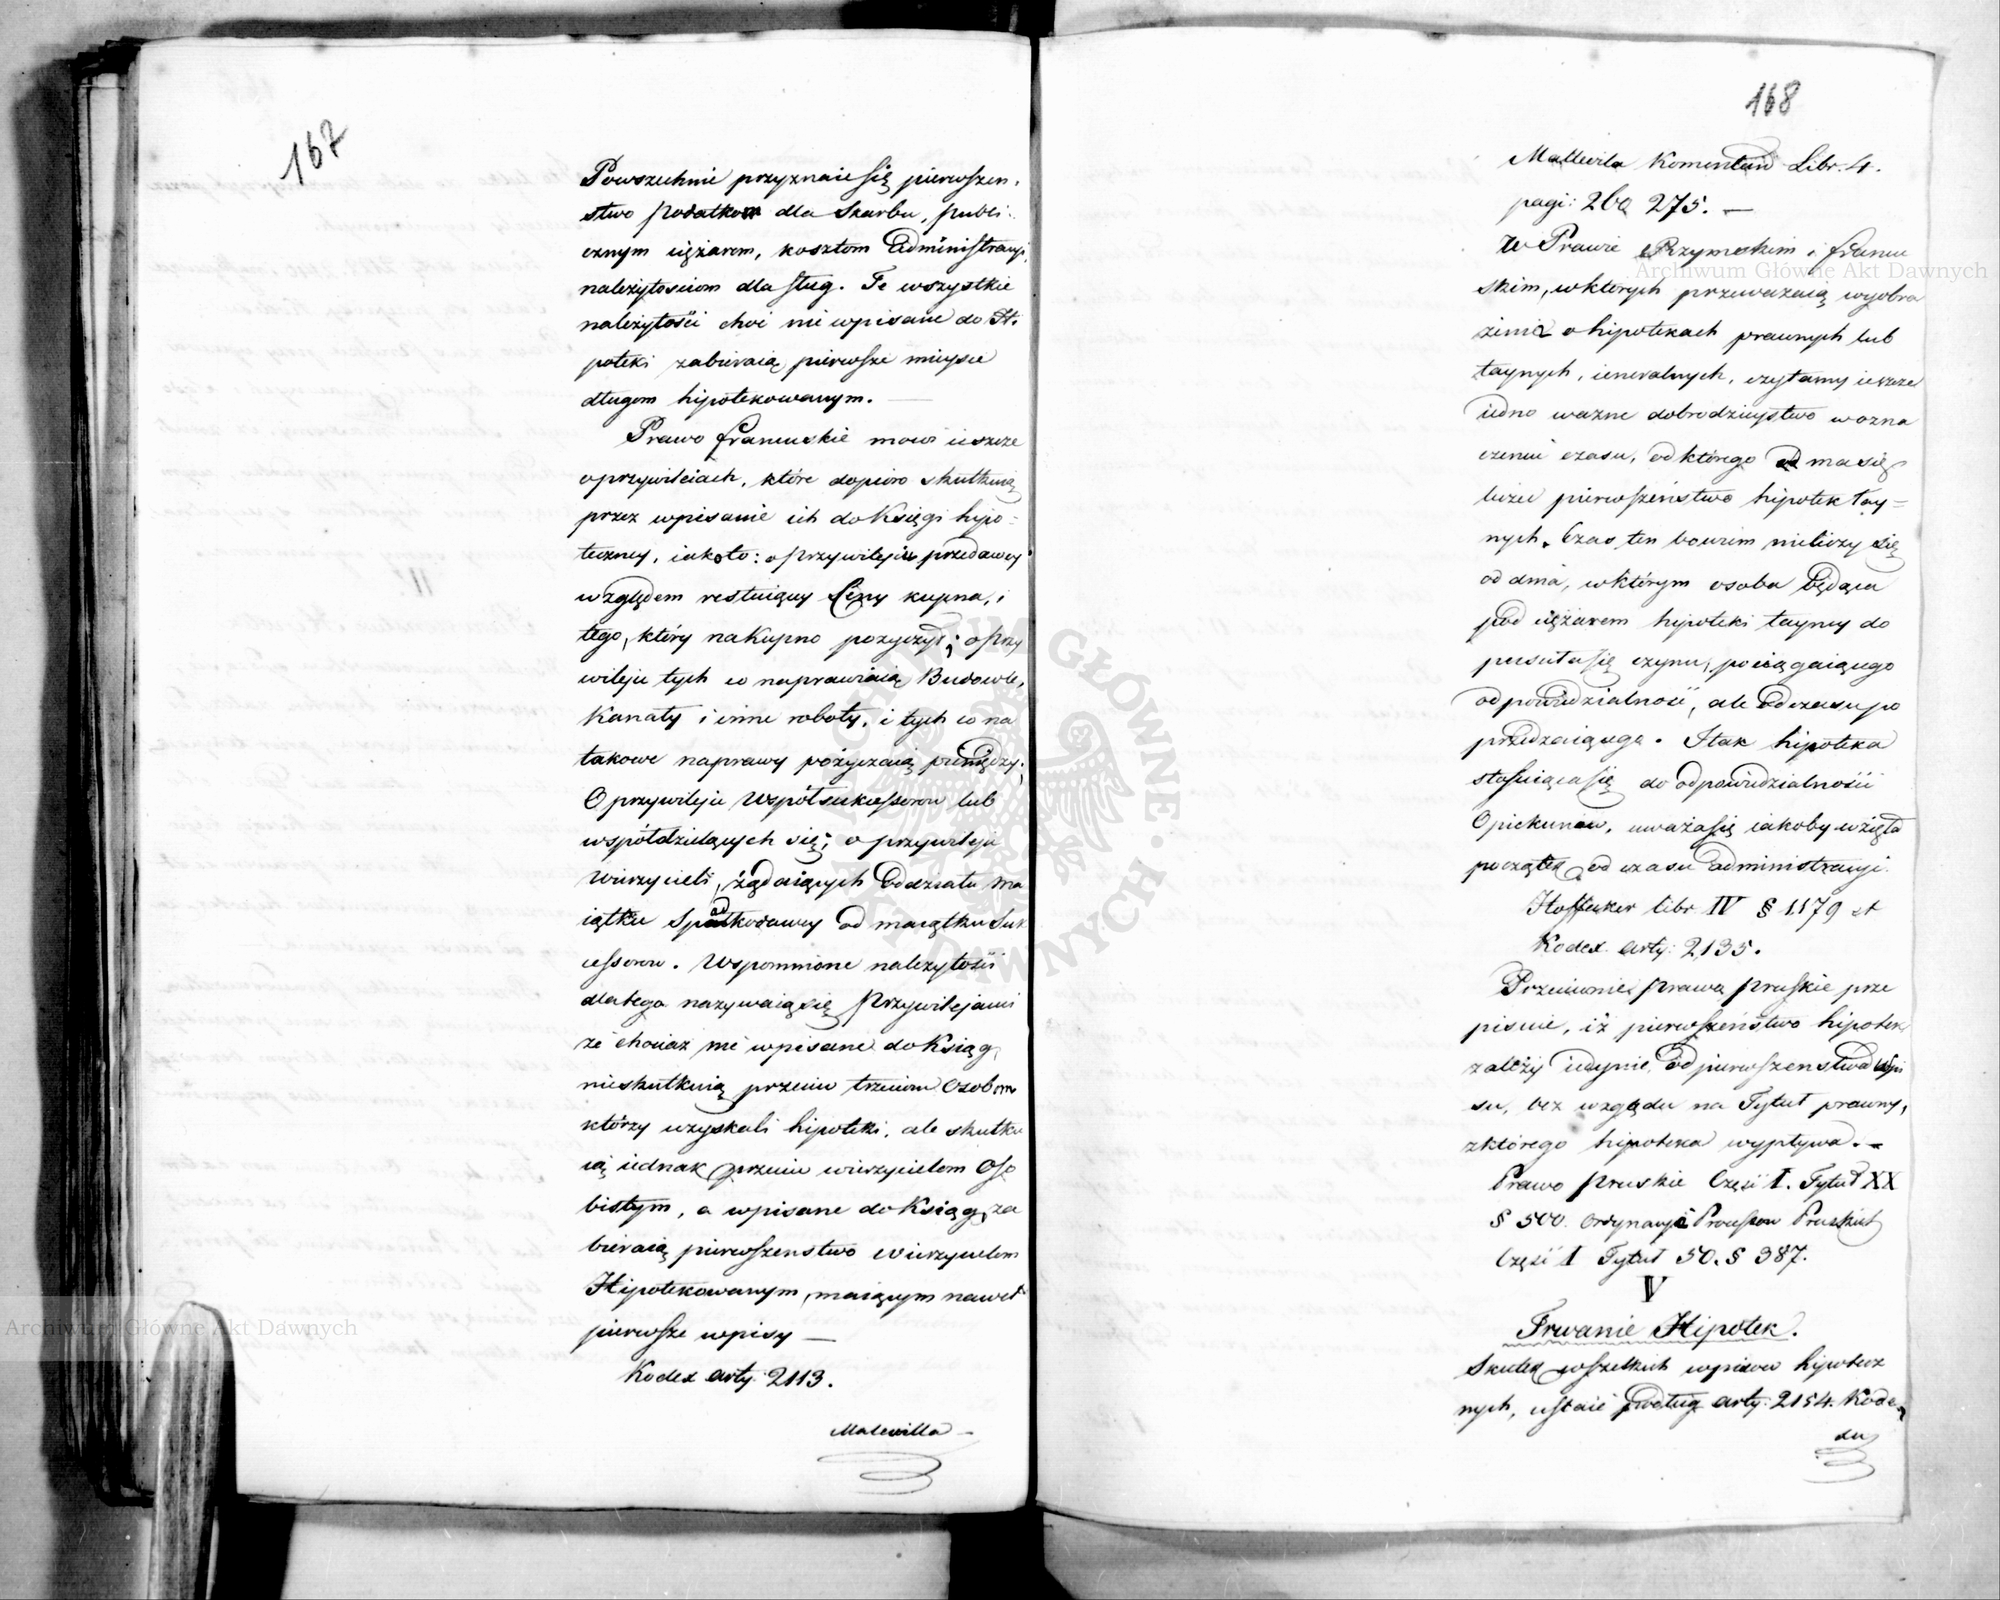 167
Powszechnie przyznaie się pierwszen.
stwo podatkow dla Skarbu, publi.
cznym ciężarom, kosztom administracyi,
należytościom dla sług. Te wszystkie
należytości choć nie wpisane do Hi.
poteki zabieraią pierwsze mieysce
długom hipotekowanym. —
Prawo francuskie mowi ieszcze
o przywileiach, które dopiero skutkuią
przez wpisanie ich do Księgi hypo=
teczney, iakoto: o przywileju przedawcy
względem restuiącey Ceny kupna, i
tego, który na Kupno pożyczył; o przy
wileju tych co naprawiaią Budowle,
Kanały i inne roboty, i tych co na
takowe naprawy pożyczaią pieniędzy;
O przywileju Współsukcessorow lub
współdzielących się; o przywileju
Wierzycieli, żądaiących Oddziału ma
iątku Spadkodawcy od maiątku Suk
cessorow. Wspomnione należytości
dlatego nazywaią się Przywilejami
że chociaż nie wpisane do Ksiąg,
nieskutkuią przeciw trzecim Osobom
którzy uzyskali hipoteki, ale skutku
ią iednak przeciw wierzycielom Oso
bistym, a wpisane do Ksiąg, za
bieraią pierwszenstwo Wierzycielom
Hipotekowanym, maiącym nawet
pierwsze wpisy —
Kodex arty: 2113.
Malevilla —
168
Mallevila Komentarz Libr. 4.
pagi: 260 275. —
W Prawie Rzymskim i francu
skim, w których przeważaią wyobra
żenia o hipotekach prawnych lub
taynych, ieneralnych, czytamy ieszcze
iedno ważne dobrodzieystwo w ozna
czeniu czasu, od którego ma się
liczić pierwszeństwo hipotek tay=
nych. Czas ten bowiem nieliczy się
od dnia, w którym osoba będąca
pod ciężarem hipoteki tayney do
puściła się czynu, pociągaiącego
odpowiedzialność, ale od czasu po
przedzaiącego. I tak hipoteka
stosuiąca się do odpowiedzialności
Opiekunów, uważa się iakoby wzięła
początek od czasu administracyi.
Hoffaker libr IV § 1179 et
Kodex. arty: 2,135.
Przeciwnie prawa pruskie prze
pisuie, iż pierwszeństwo hipotek
zależy iedynie, od pierwszenstwa wpi
su, bez względu na Tytuł prawny,
z którego hipoteka wypływa. —
Prawo pruskie Część I. Tytuł XX
§ 500. Ordynacyi Processow Pruskich
Część I Tytuł 50. § 387.
V
Trwanie Hipotek.
Skutek wszelkich wpisow hipotecz
nych, ustaie podług arty: 2154. Kode,
xu
Archiwum Główne Akt Dawnych
Archiwum Główne Akt Dawnych
ARCHIWUM GŁÓWNE AKT DAWNYCH